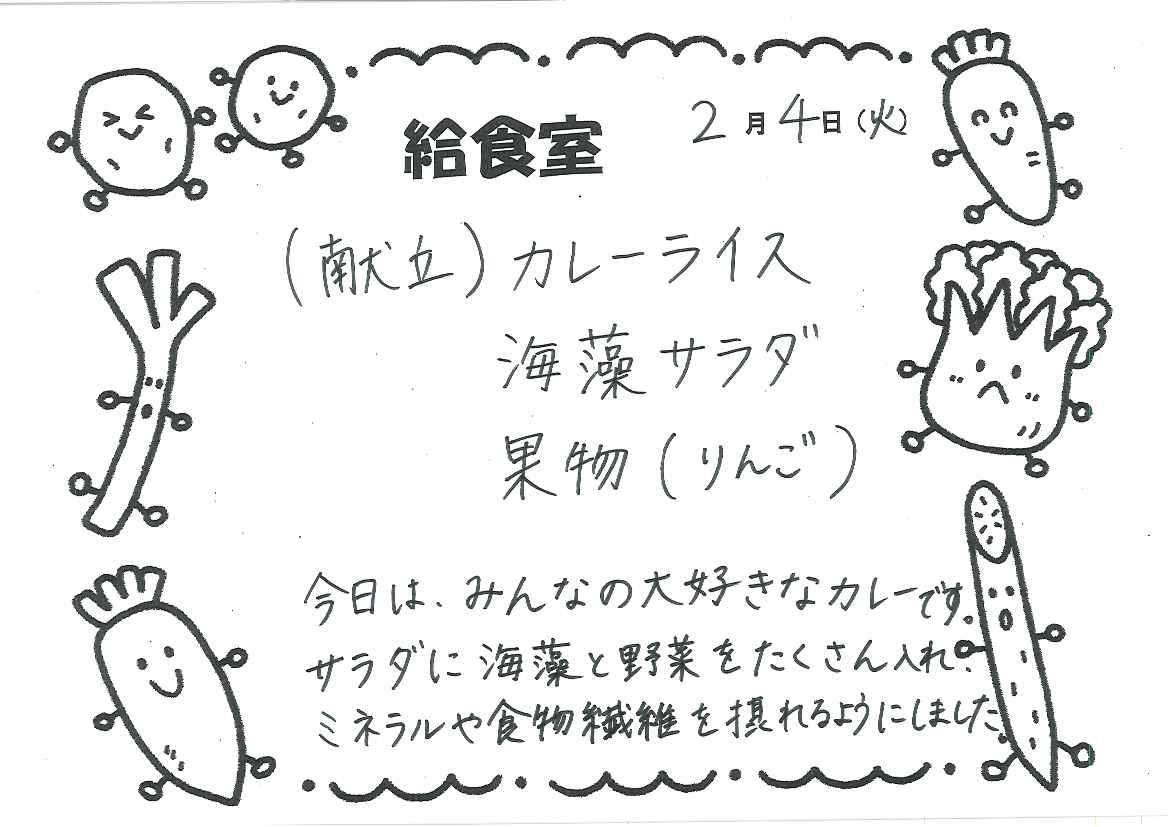 給食室
2月4日(火)
(献立)カレーライス
海藻サラダ
果物(りんご)
今日は、みんなの大好きなカレーです。
サラダに海藻と野菜をたくさん入れ、
ミネラルや食物繊維を摂れるようにしました。